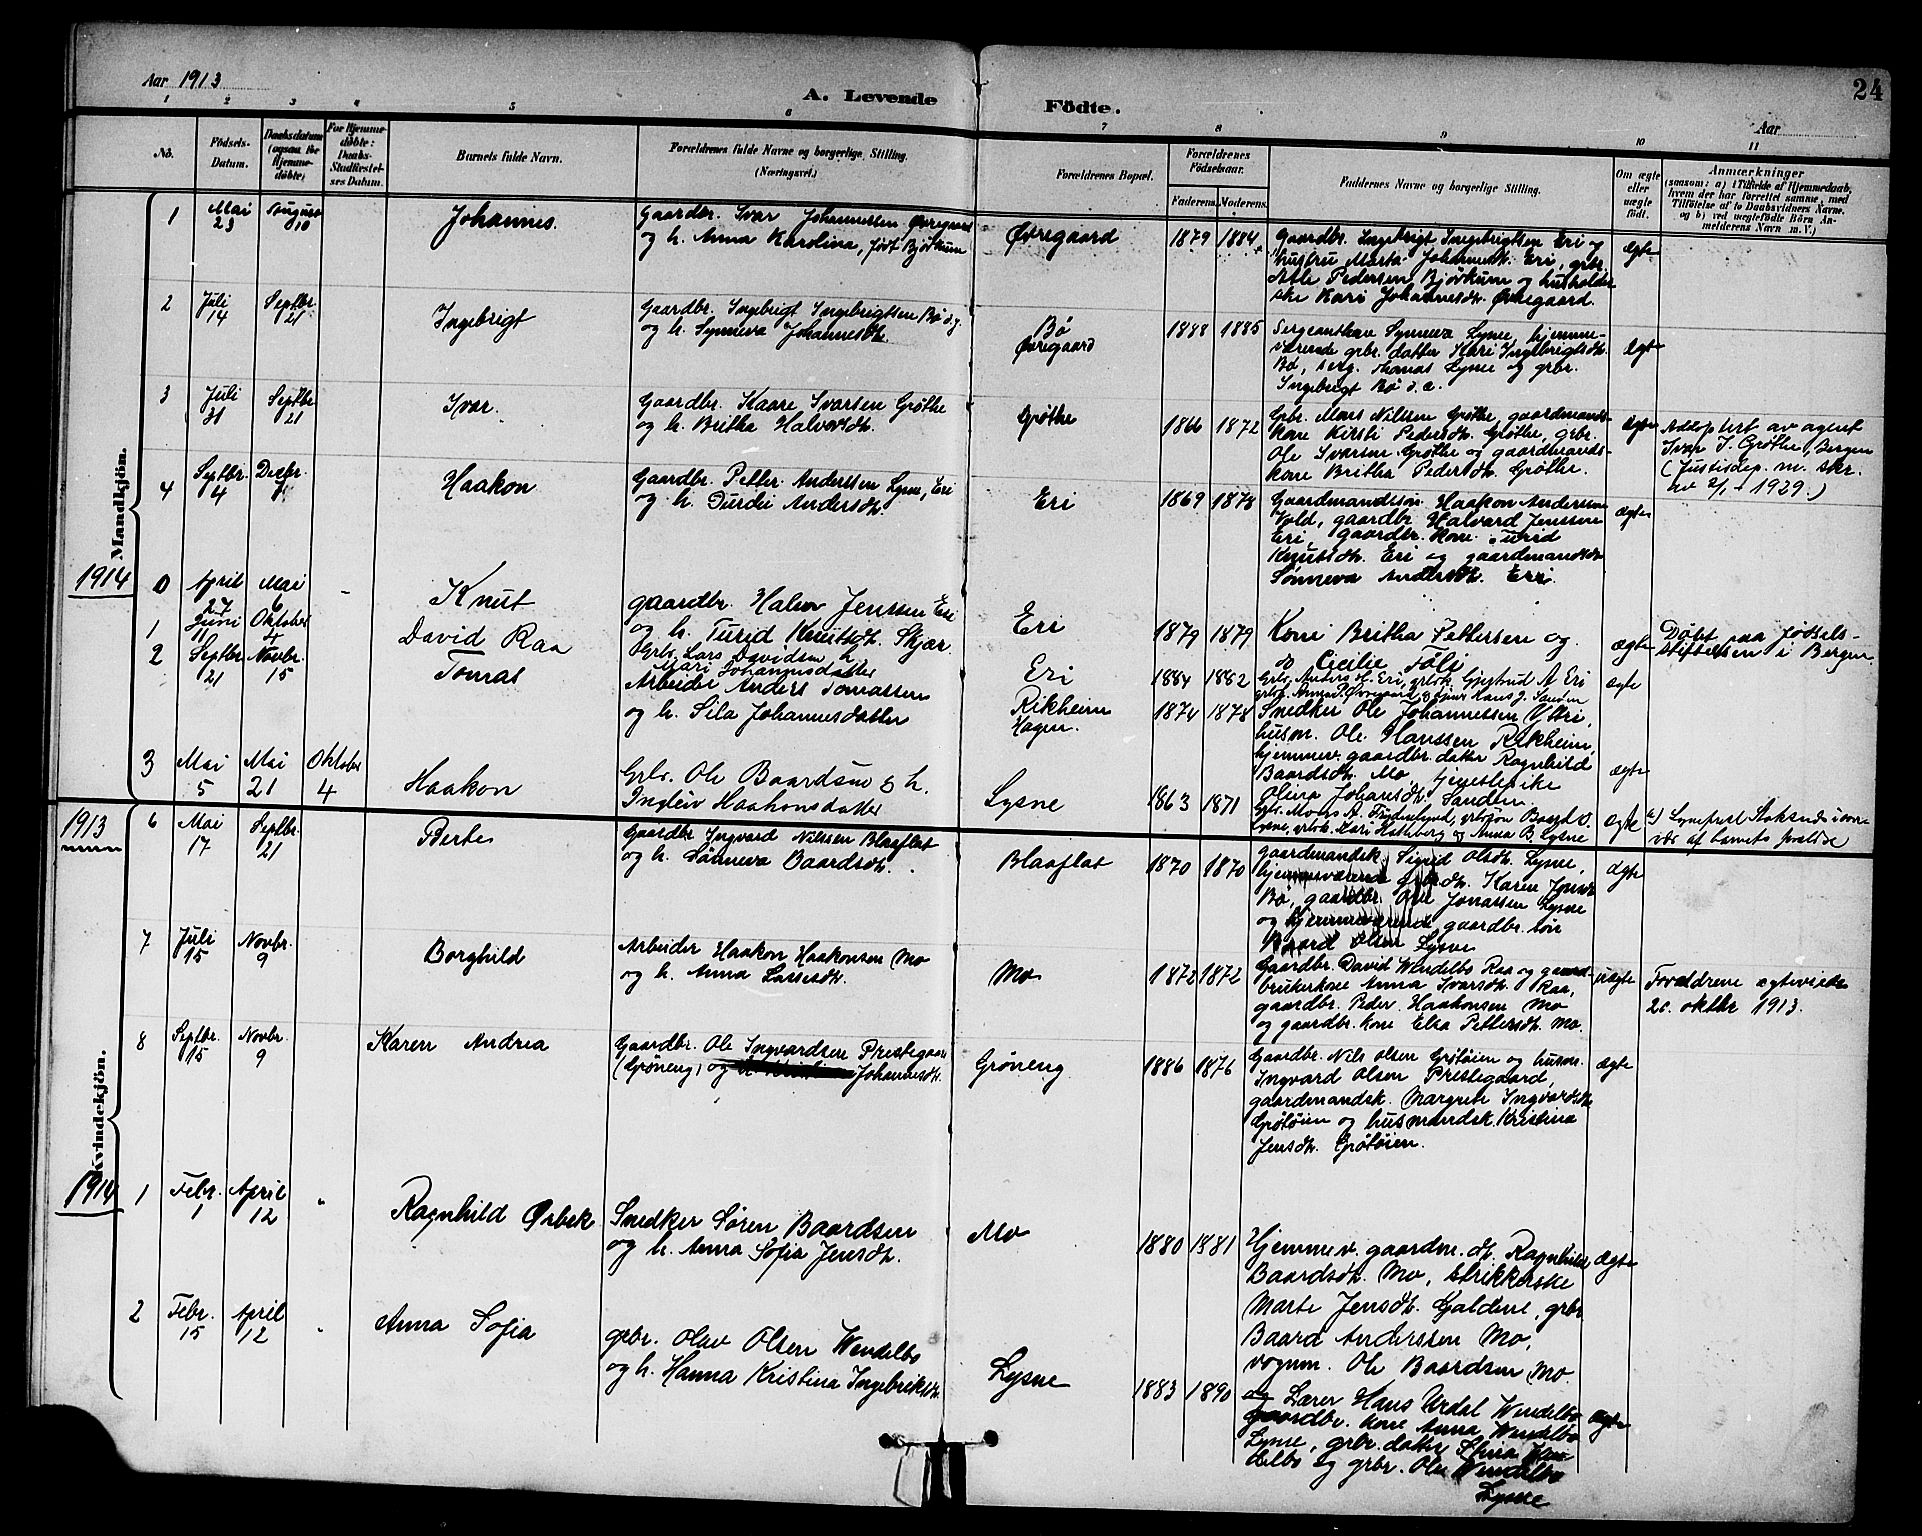 Aar 1913
A. Levende Födte.
24
Aar
1 2 3 4 5 6 7 8 9 10 11
No.
Födsels-Datum.
Daabsdatum (ogsaa for Hjemmedöbte)
For Hjemmedöbte: Daabs-Stadfæstelses Datum.
Barnets fulde Navn.
Forældrenes fulde Navne og borgerlige Stilling. (Næringsvei.)
Forældrenes Bopæl.
Forældrenes Födselsaar.
Faderens. Moderens.
Faddernes Navne og borgerlige Stilling.
Om ægte eller uægte födt.
Anmærkninger
(saasom: a) i Tilfælde af Hjemmedaab, hvem der har forrettet samme, med Tilföielse af to Daabsvidners Navne, og b) ved uægtefödte Börn Anmelderens Navn m. V.)
Mandkjön.
1 Mai 23 August 10 Johannes.
Gaardbr. Ivar Johannessen Øvregaard
og h. Anna Karolina, født Bjørkum
Øvregaard 1879 1884
Gaardbr. Ingebrigt Ingebrigtsen Eri og
hustru Marta Johannesdt. Eri, grbr.
Atle Pedersen Bjørkum og husholder
ske Kari Johannesdt. Øvregaard.
ægte
2 Juli 14 Septbr. 21 Ingebrigt
Gaardbr. Ingebrigt Ingebrigtsen Bø
og h. Synneva Johannesdt.
Bø
Øvregaard
1888 1885
Sergeantkone Synneva Lysne, hjemme-
værende grbr. datter Kari Ingebrigtsdt.
Bø, serg. Tomas Lysne og grbr.
Ingebrigt Bø s.æ.
ægte
3 Juli 31 Septbr 21 Ivar.
Gaardbr. Kaare Ivarsen Grøthe
og h. Britha Halvorsdt.
Grøthe 1866 1872
Grbr. Mons Nilssen Grøthe, gaardmands-
kone Kirsti Pedersdt. Grøthe, grbr.
Ole Ivarsen Grøthe og gaardmands-
kone Britha Pedersdt. Grøthe.
ægte
Adoptert av agent
Ivar I. Grøthe, Bergen
(Justisdep. m. skr.
av 2/1 1929.)
4 Septbr. 4 Decbr. Haakon
Gaardbr. Petter Anderssen Lysne, Eri
og h. Durdei Andersdt.
Eri 1869 1878
Gaardmandssøn Haakon Andersen
Vold, gaardbr. Halvard Jenssen
Eri, gaardbr. kone Turid
Knutsdt. Eri og gaardmandsdt.
Sønneva Andersdt. Eri.
ægte
1914
0 April 27 Mai 6 - Knut
gaardbr. Halvor Jenssen Eri
og h. Turid Knutsdt. Skjær.
Eri 1879 1879
Kone Britha Pettersen og
do Cicilie Føli
ægte
Døbt paa fødsels-
stiftelsen i Bergen
1 Juni 11 Oktober 4 David Raa
Grbr. Lars Davidsen & h.
Mari Johannesdatter
Eri 1884 1882
Grbr. Anders H. Eri, grbrk. Gjertrud A Eri
grbr. Anna P. Øvregaard & tjener Hans J. Sanden
ægte
2 Septbr 21 Novbr. 15 Tomas
Arbeider Anders Tomassen
og h. Sila Johannesdatter
Rikheim
Hagen.
1874 1878
Snedker Ole Johannessen Yttri,
husm. Ole Hanssen Rikheim,
hjemmev. gaardbr. datter Ragnhild
Baardsdt. Mo, tjenestepike
Olina Johansdt. Sanden.
ægte
3 Mai 5 Mai 21 Oktober 4 Haakon
Grbr. Ole Baardsen & h.
Ingleiv Haakonsdatter
Lysne 1863 1871
Grbr. Mons A. Fridenlund, grbrsøn Baard O.
Lysne, grbrk. Kari Hamberg og Anna B. Lysne
ægte
Kvindekjön.
1913
6 Mai 17 Septbr. 21 Berte
Gaardbr. Ingvard Nilssen Blaaflat
og h. Sønneva Baardsdt.
Blaaflat 1870 1870
Gaardmandsk. Sigrid Olsdt. Lysne,
hjemmeværende grbrdt. Karen Jensdt
Bø, gaardbr. Ole Jonassen Lysne
og hjemmeværende gaardbr. søn
Baard Olsen Lysne
ægte
7 Juli 15 Novbr. 9 Borghild
Arbeider Haakon Haakonsen Mo
og h. Anna Lassesdt.
Mo 1872 1872
Gaardbr. David Wendelbo Raa og gaard-
brukerkone Anna Ivarsdt. Raa,
gaardbr. Peder Haakonsen Mo
og gaardbr. kone Elsa Pettersdt. Mo.
uægte
Forældrene ægteviede
20. oktbr 1913.
8 Septbr. 15 Novbr. 9 Karen Andrea
Gaardbr. Ole Ingvardsen Prestegaard
(Grøneng) og Johannesdt.
Grøneng 1886 1876
Gaardbr. Nils Olsen Grøtøien og husm.
Ingvard Olsen Prestegaard,
gaardmandsk. Margrete Ingvardsdt
Grøtøien og husmandsk. Kristina
Jensdt. Grøtøien.
ægte
1914
1 Febr. 1 April 12 " Ragnhild Ørbek
Snedker Søren Baardsen
og h. Anna Sofia Jensdt.
Mo 1880 1881
Hjemmev. gaardm. dt. Ragnhild
Baardsdt. Mo, strikkerske
Marte Jensdt. Galdene, grbr
Baard Anderssen Mo,
vognm. Ole Baardsen Mo
ægte
2 Febr. 15 April 12 " Anna Sofia
grbr. Olav Olsen Wendelbo
og h. Hanna Kristina Ingebriktsdt
Lysne 1883 1890
og Lærer Hans Urdal Wendelbo
Gaardbr. kone Anna Wendelbo
Lysne, grbr. datter Stina Wen-
delbo og grbr. Ole Wendelbo
Lysne
ægte